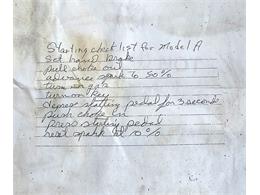 Starting check list for Model A
Set hand brake
pull choke out
advance spark to 50%
turn on gas
turn on key
depress starting pedal for 3 seconds
push choke in
press starting pedal
reset spark to 0%